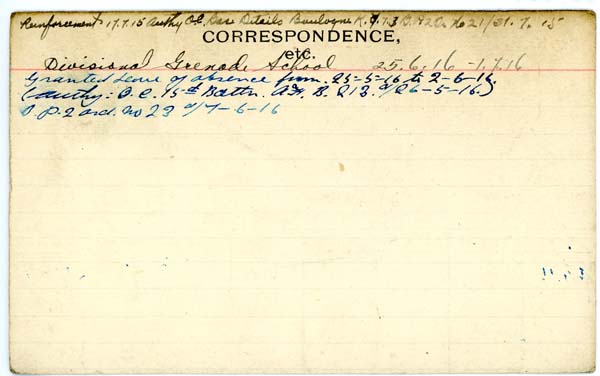 Reinforcement 17.7.15 Authy O.C. Base Details Boulogne 21/31.7.15
CORRESPONDENCE,
etc.
Divisional Grenade School 25.6.16 - 1.7.16
Granted leave of absence from 25-5-16 to 2-6-16.
(authy: O.C. 15th Battn. A.F. B. 213. d/26-5-16.)
ord. No 23 d/7-6-16